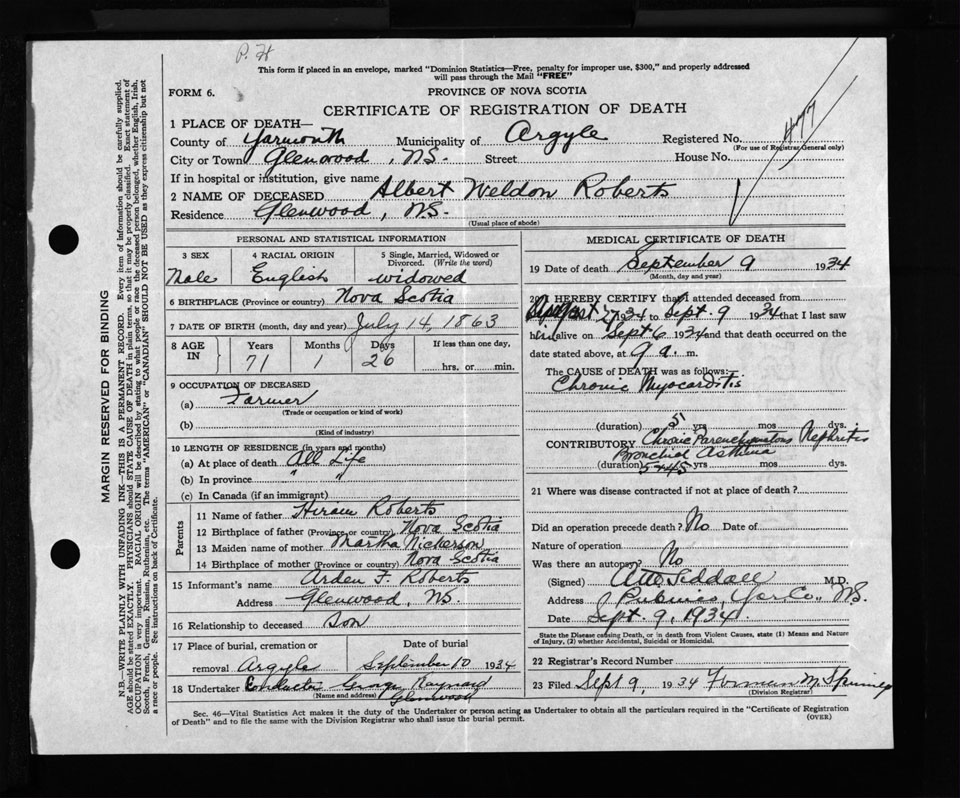 P. H
This form if placed in an envelope, marked "Dominion Statistics—Free, penalty for improper use, $300," and properly addressed
will pass through the Mail "FREE"
FORM 6.
PROVINCE OF NOVA SCOTIA
CERTIFICATE OF REGISTRATION OF DEATH
1 PLACE OF DEATH—
County of Yarmouth Municipality of Argyle Registered No.
(For use of Registrar General only)
City or Town Glenwood, N.S. Street House No.
If in hospital or institution, give name
2 NAME OF DECEASED Albert Weldon Roberts
Residence Glenwood, N.S.
(Usual place of abode)
PERSONAL AND STATISTICAL INFORMATION
3 SEX 4 RACIAL ORIGIN 5 Single, Married, Widowed or
Divorced. (Write the word)
Male English widowed
6 BIRTHPLACE (Province or country) Nova Scotia
7 DATE OF BIRTH (month, day and year) July 14, 1863
8 AGE IN Years Months Days If less than one day,
71 1 26 hrs. or min.
9 OCCUPATION OF DECEASED
(a) Farmer
(Trade or occupation or kind of work)
(b)
(Kind of industry)
10 LENGTH OF RESIDENCE (in years and months)
(a) At place of death All Life
(b) In province " "
(c) In Canada (if an immigrant)
Parents
11 Name of father Hiram Roberts
12 Birthplace of father (Province or country) Nova Scotia
13 Maiden name of mother Martha Nickerson
14 Birthplace of mother (Province or country) Nova Scotia
15 Informant's name Arden F. Roberts
Address Glenwood, N.S.
16 Relationship to deceased Son
17 Place of burial, cremation or Date of burial
removal Argyle September 10 1934
18 Undertaker Conductor George Raynard
(Name and address) Glenwood
MEDICAL CERTIFICATE OF DEATH
19 Date of death September 9 1934
(Month, day and year)
20 I HEREBY CERTIFY that I attended deceased from
1934 to Sept. 9 1934 that I last saw
him alive on Sept 6 1934 and that death occurred on the
date stated above, at 9 a. m.
The CAUSE of DEATH was as follows:
Chronic Myocarditis
(duration) 5 yrs mos dys.
CONTRIBUTORY Chronic Parenchymatous Nephritis
Bronchial Asthma
(duration) yrs mos dys.
21 Where was disease contracted if not at place of death?
Did an operation precede death? No Date of
Nature of operation
Was there an autopsy? No
(Signed) Siddall M.D.
Address Pubnico, Yar. Co., N.S.
Date Sept. 9, 1934.
State the Disease causing Death, or in death from Violent Causes, state (1) Means and Nature
of Injury, (2) whether Accidental, Suicidal or Homicidal.
22 Registrar's Record Number
23 Filed Sept 9, 1934 Forman M. Spinney
(Division Registrar)
Sec. 46—Vital Statistics Act makes it the duty of the Undertaker or person acting as Undertaker to obtain all the particulars required in the "Certificate of Registration
of Death" and to file the same with the Division Registrar who shall issue the burial permit.
(OVER)
MARGIN RESERVED FOR BINDING
N.B.—WRITE PLAINLY WITH UNFADING INK—THIS IS A PERMANENT RECORD. Every item of information should be carefully supplied.
AGE should be stated EXACTLY. PHYSICIANS should STATE CAUSE OF DEATH in plain terms, so that it may be properly classified. Exact statement of
OCCUPATION is very important. RACIAL ORIGIN will be described by stating to what people or race the deceased person belonged, whether English, Irish,
Scotch, French, German, Russian, Ruthenian, etc. The terms "AMERICAN" or "CANADIAN" SHOULD NOT BE USED as they express citizenship but not
a race or people. See instructions on back of Certificate.